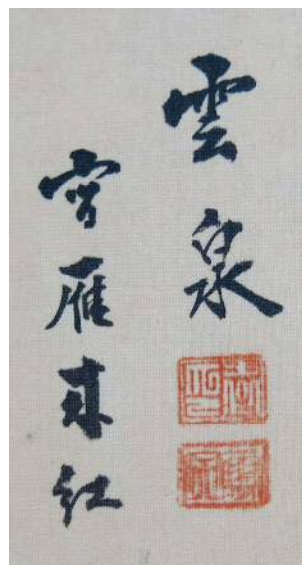 雲泉
寫雁來紅